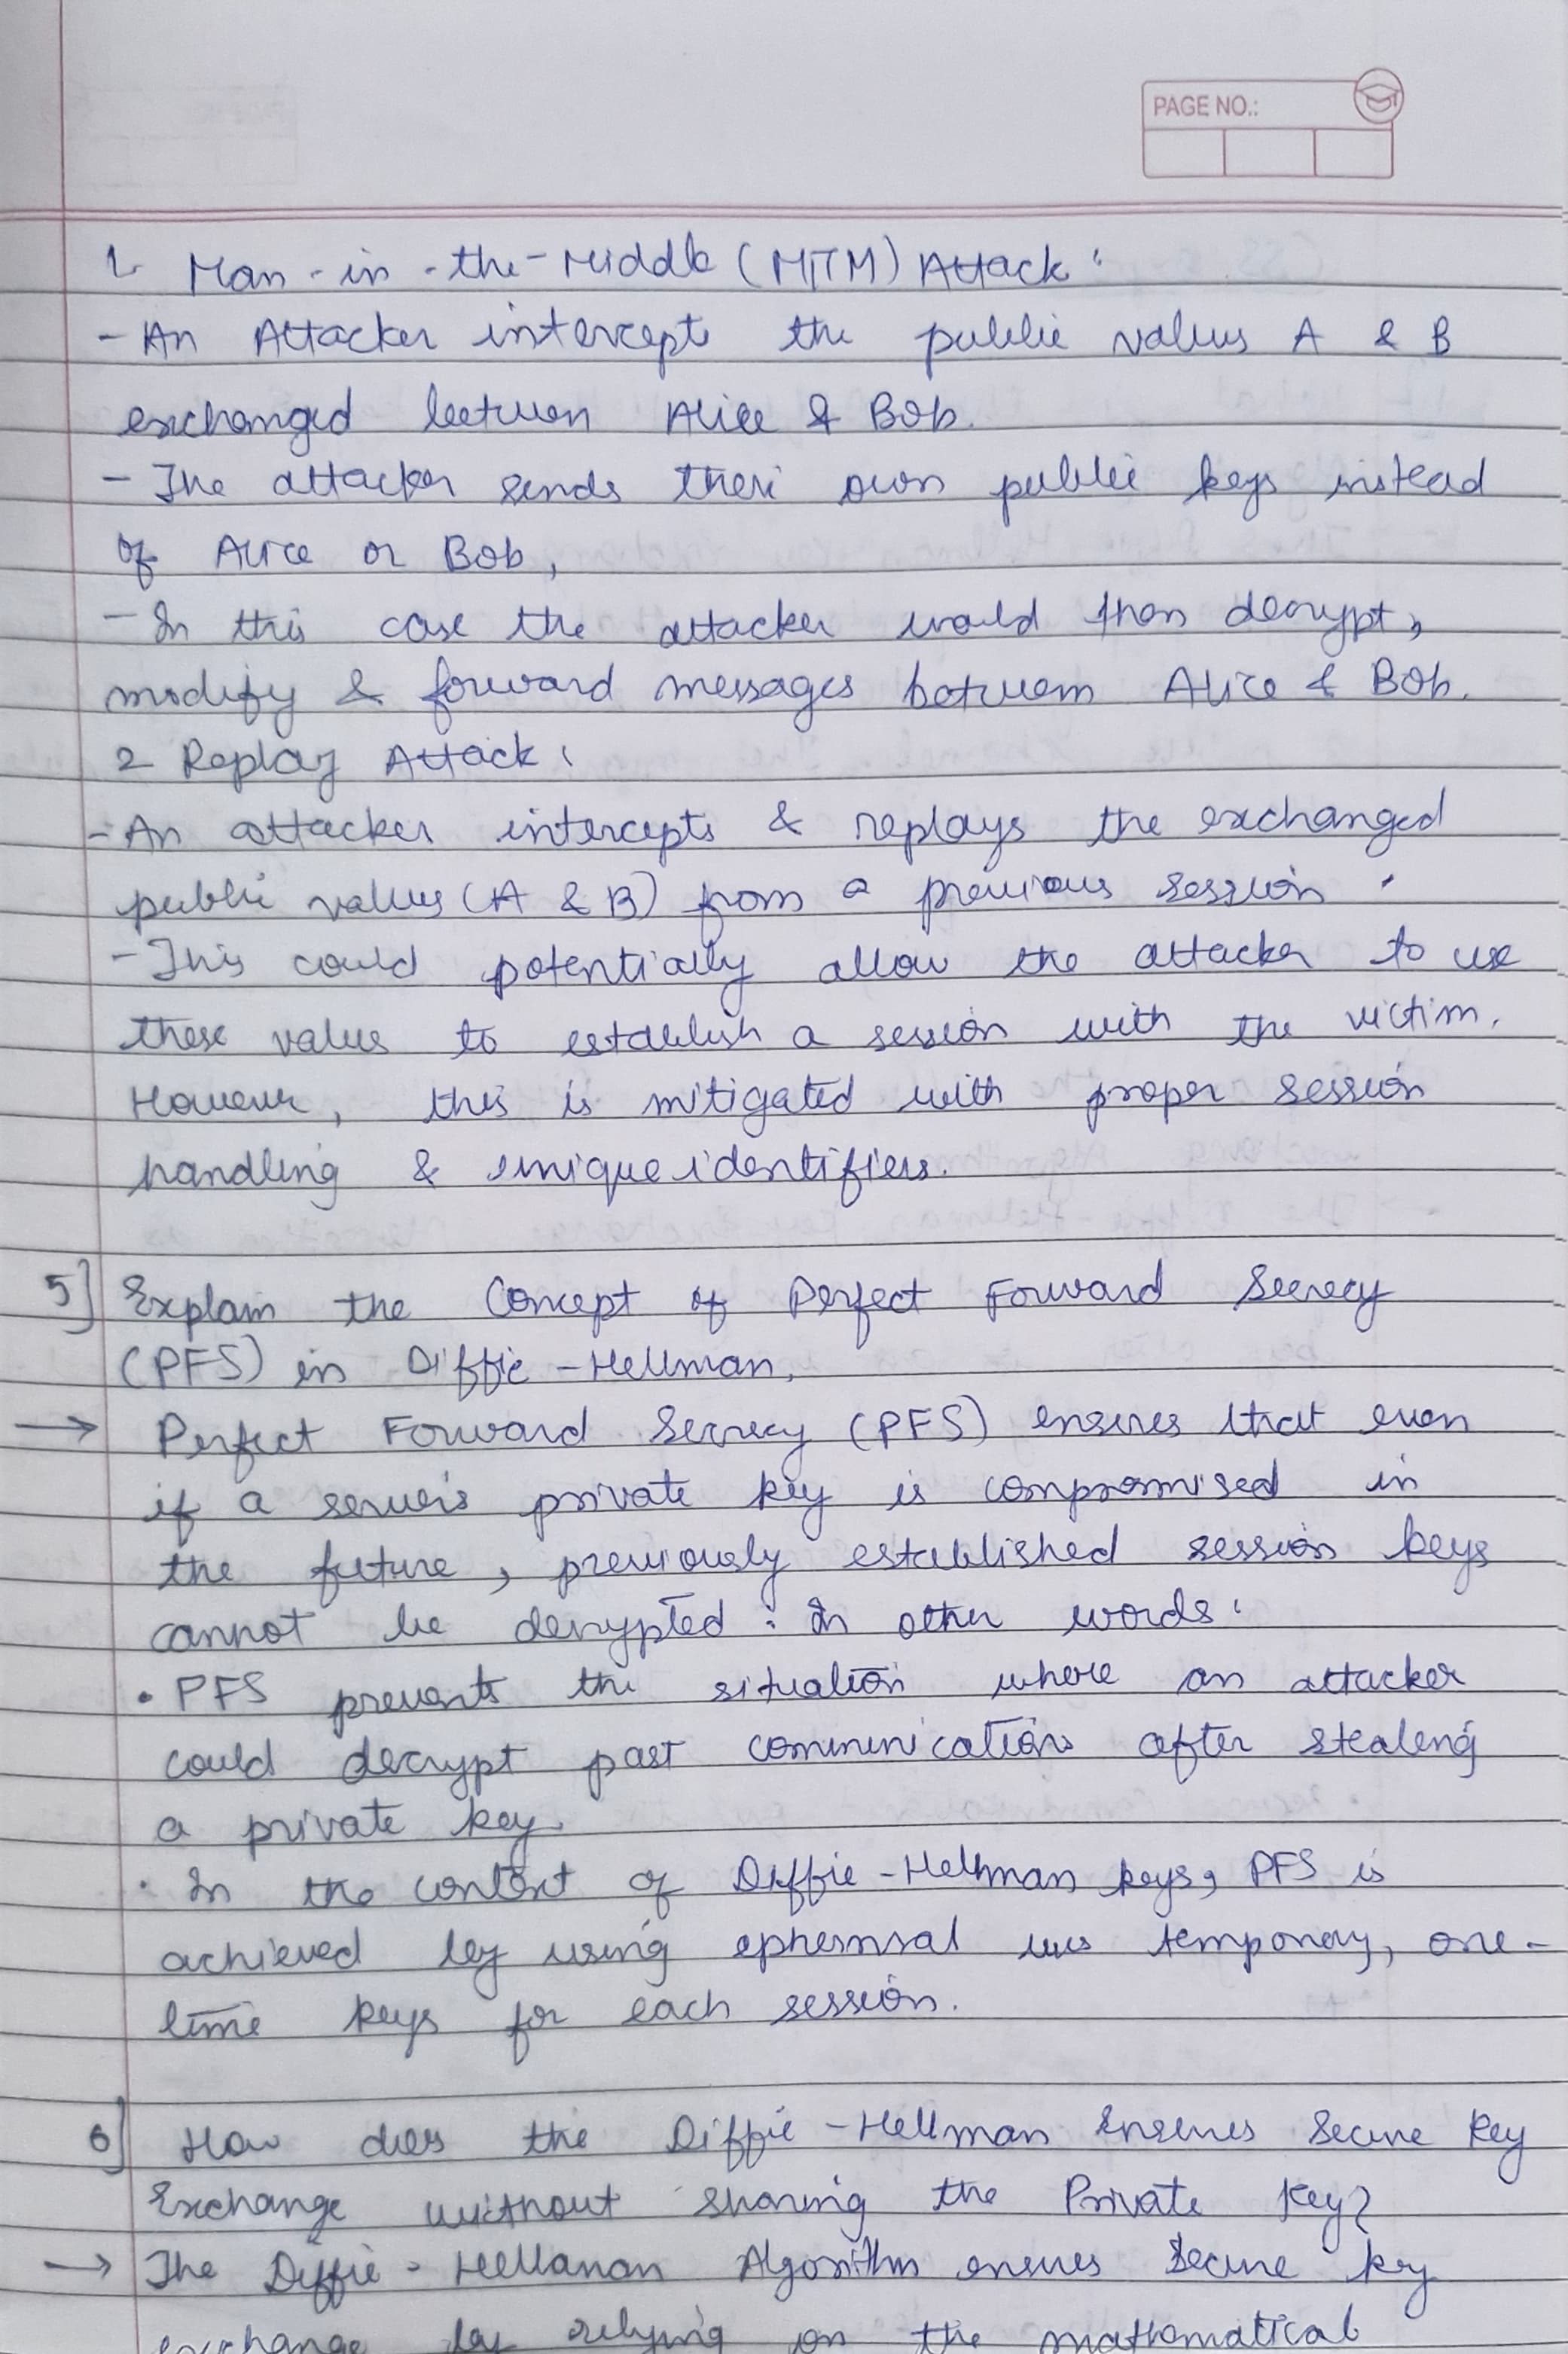 PAGE NO.:
1. Man-in-the-Middle (MITM) Attack:
- An Attacker intercepts the public values A & B
exchanged between Alice & Bob.
- The attacker sends their own public keys instead
of Alice or Bob,
- In this case the attacker would then decrypt,
modify & forward messages between Alice & Bob.
2 Replay Attack:
- An attacker intercepts & replays the exchanged
public values (A & B) from a previous session.
- This could potentially allow the attacker to use
these values to establish a session with the victim.
However, this is mitigated with proper session
handling & unique identifiers.
5] Explain the Concept of Perfect Forward Secrecy
(PFS) in Diffie-Hellman.
→ Perfect Forward Secrecy (PFS) ensures that even
if a server's private key is compromised in
the future, previously established session keys
cannot be decrypted. In other words:
• PFS prevents the situation where an attacker
could decrypt past communications after stealing
a private key.
• In the context of Diffie-Hellman keys, PFS is
achieved by using ephemeral temporary, one-
time keys for each session.
6] How does the Diffie-Hellman Ensures Secure Key
Exchange without sharing the Private Key?
→ The Diffie-Hellman Algorithm ensures Secure key
exchange by relying on the mathematical